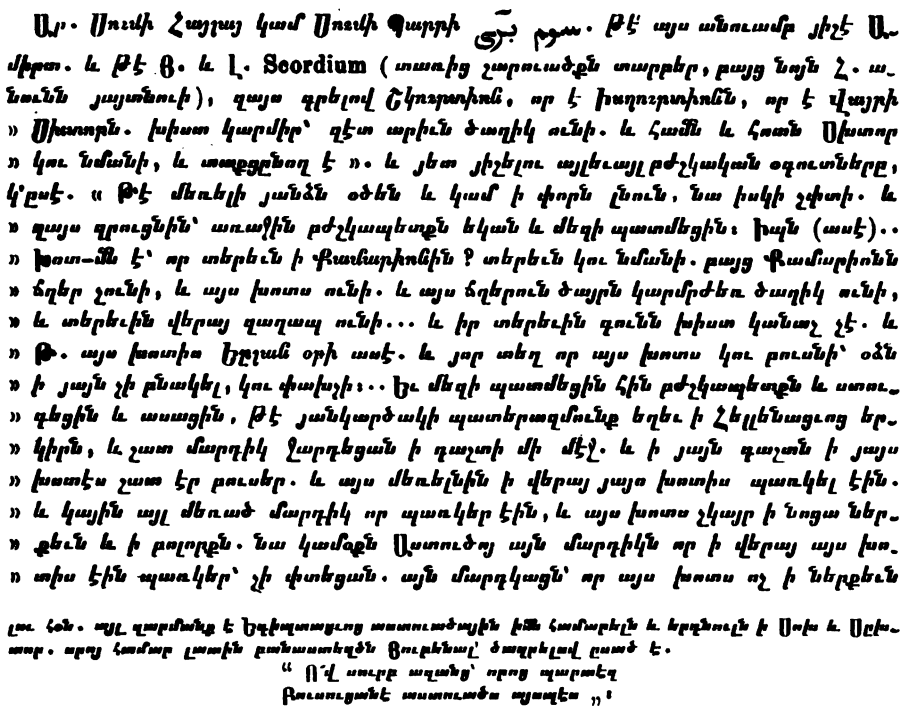 Ար. Սումի Հայյայ կամ Սումի Պարրի سوم برّى. թէ այս անուամբ յիշէ Ա-
միրտ. և թէ Յ. և Լ. Scordium (տառից շարուածքն տարբեր, բայց նոյն Հ. ա-
նունն յայտնուի), զայս գրելով Շկուրտիոն, որ է Իսղուրտիոնն, որ է վայրի
» Սխտորն. խիստ կարմիր՝ զէտ արիւն ծաղիկ ունի. և համն և հոտն Սխտոր
» կու նմանի, և տաքցընող է ». և յետ յիշելու այլեւայլ բժշկական օգուտները,
կ'ըսէ. « Թէ մեռելի յանձն օծեն և կամ ի փորն լնուն, նա իսկի չփտի. և
» զայս զրուցնին՝ առաջին բժշկապետքն եկան և մեզի պատմեցին։ Իպն (ասէ)..
» Խոտ-մն է՝ որ տերեւն ի Քամարիոնին ? տերեւն կու նմանի. բայց Քամարիոնն
» ճղեր չունի, և այս խոտս ունի. և այս ճղերուն ծայրն կարմրժեռ ծաղիկ ունի,
» և տերեւին վերայ զաղապ ունի... և իր տերեւին գունն խիստ կանաչ չէ. և
» Թ. այս խոտիս Երըշան օթի ասէ. և յոր տեղ որ այս խոտս կու բուսնի՝ օձն
» ի յայն չի բնակել, կու փախչի։.. Եւ մեզի պատմեցին Հին բժշկապետքն և ստու-
» գեցին և ասացին, թէ յանկարծակի պատերազմունք եղեւ ի Հելլենացւոց եր-
» կիրն, և շատ մարդիկ Ջարդեցան ի դաշտի մի մէջ. և ի յայն դաշտն ի յայս
» խոտէս շատ էր բուսեր. և այս մեռելնին ի վերայ յայս խոտիս պառկել էին.
» և կային այլ մեռած մարդիկ որ պառկեր էին, և այս խոտս չկայր ի նոցա ներ-
» քեւն և ի բոլորքն. նա կամօքն Աստուծոյ այն մարդիկն որ ի վերայ այս խո-
» տիս էին պառկեր՝ չի փտեցան. այն մարդկացն՝ որ այս խոտս ոչ ի ներքեւն
լու հօն. այլ զարմանք է Եգիպտացւոց աստուածային իմն համարելն և երդնուլն ի Սոխ և Սըխ-
տոր. որոյ համար լատին բանաստեղծն Յուբենալ՝ ծաղրելով ըսած է.
“ Ո՛վ սուրբ ազանց՝ որոց պարտէզ
Բուսուցանէ աստուածս այսպէս „։